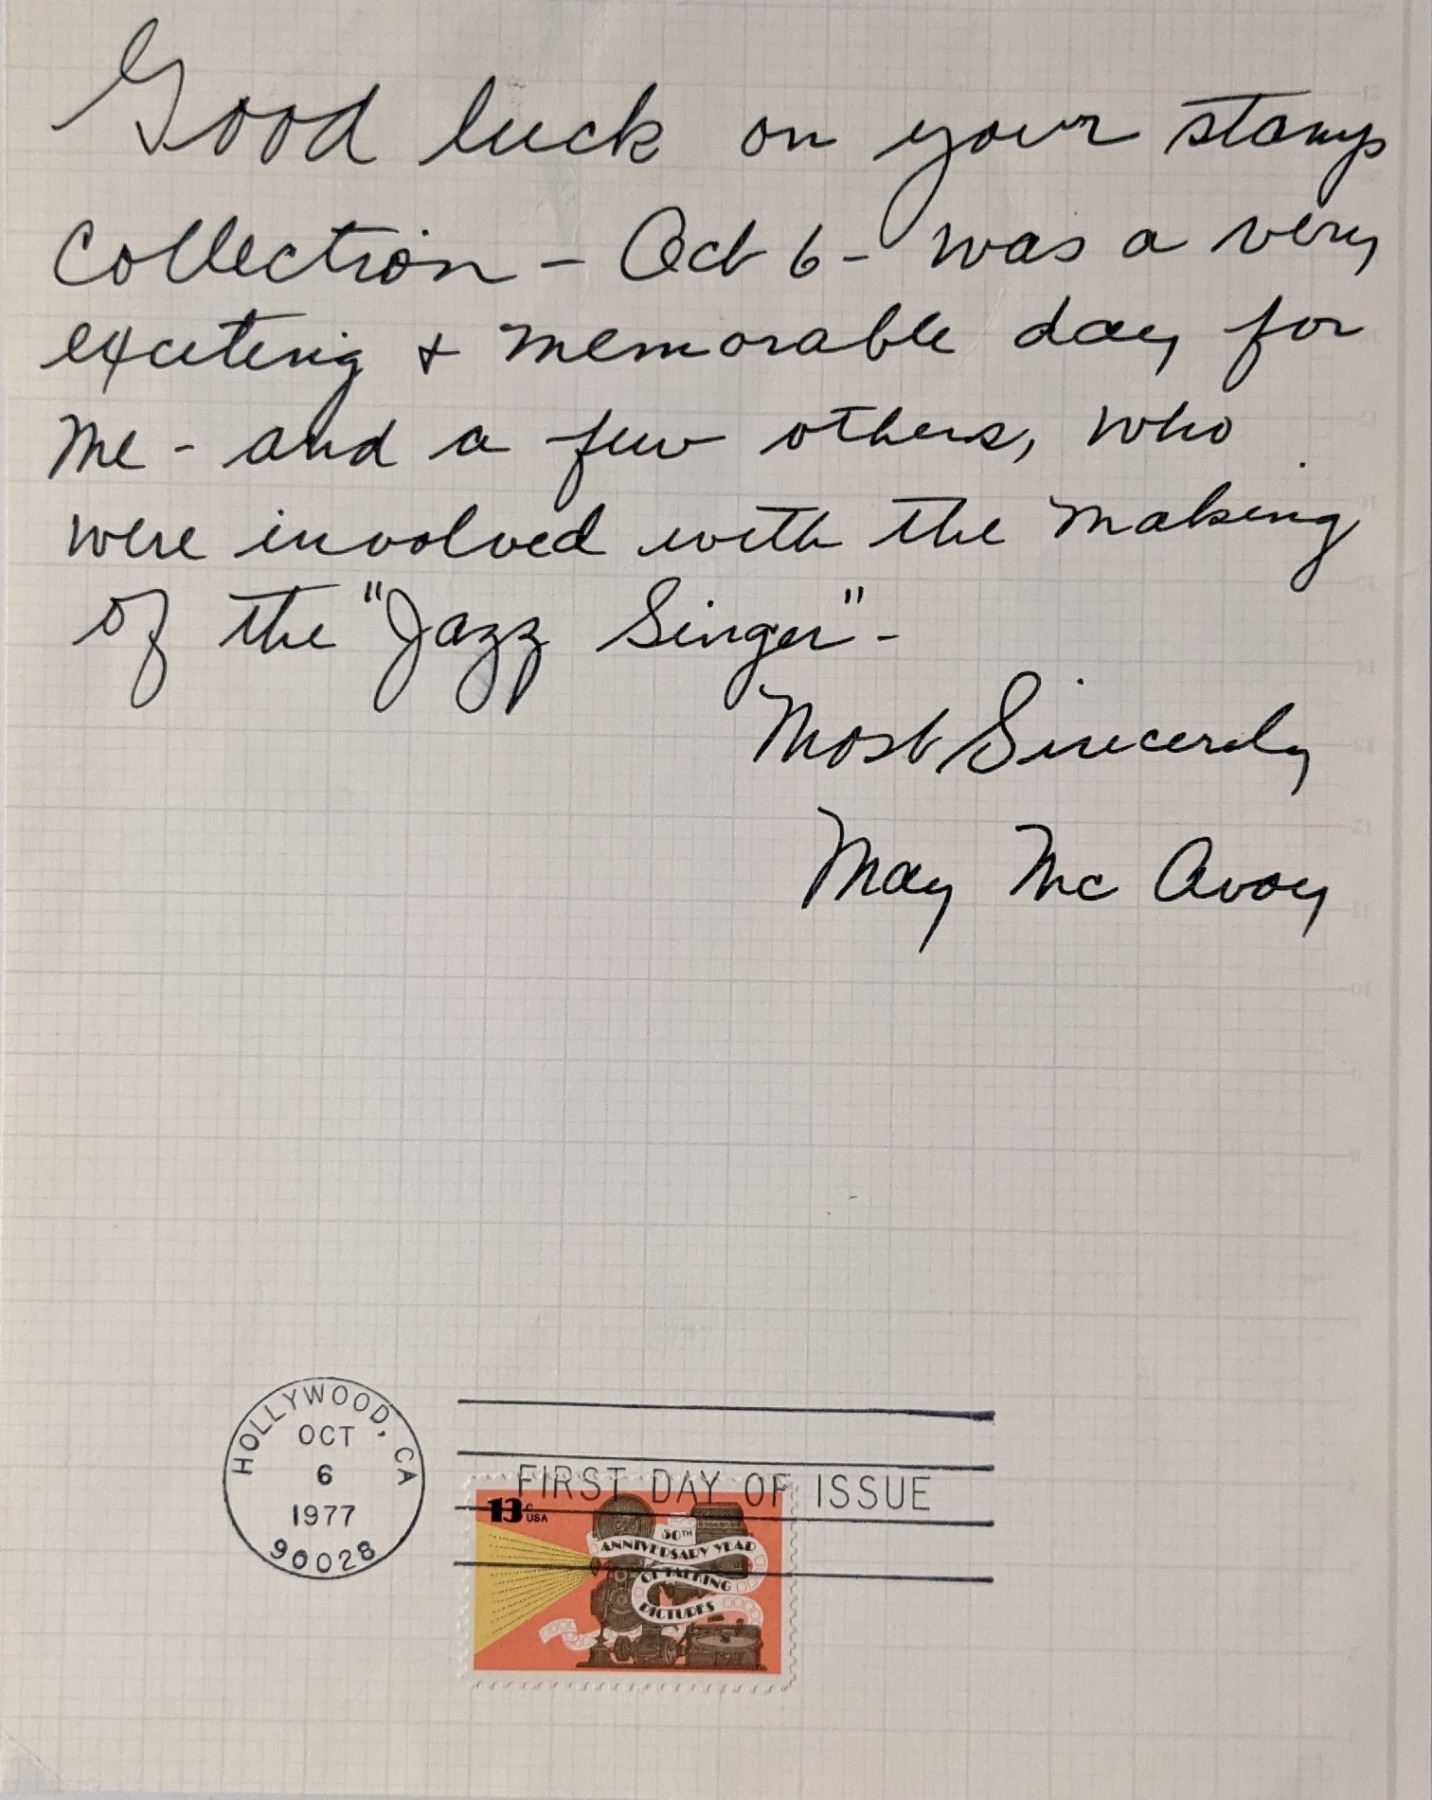 Good luck on your stamp
Collection - Oct 6 - was a very
exciting & memorable day for
me - and a few others, who
were involved with the making
of the "Jazz Singer" -
Most Sincerely
May Mc Avoy
HOLLYWOOD, CA
OCT
6
1977
90028
FIRST DAY OF ISSUE
13c USA
50TH
ANNIVERSARY YEAR
OF TALKING
PICTURES